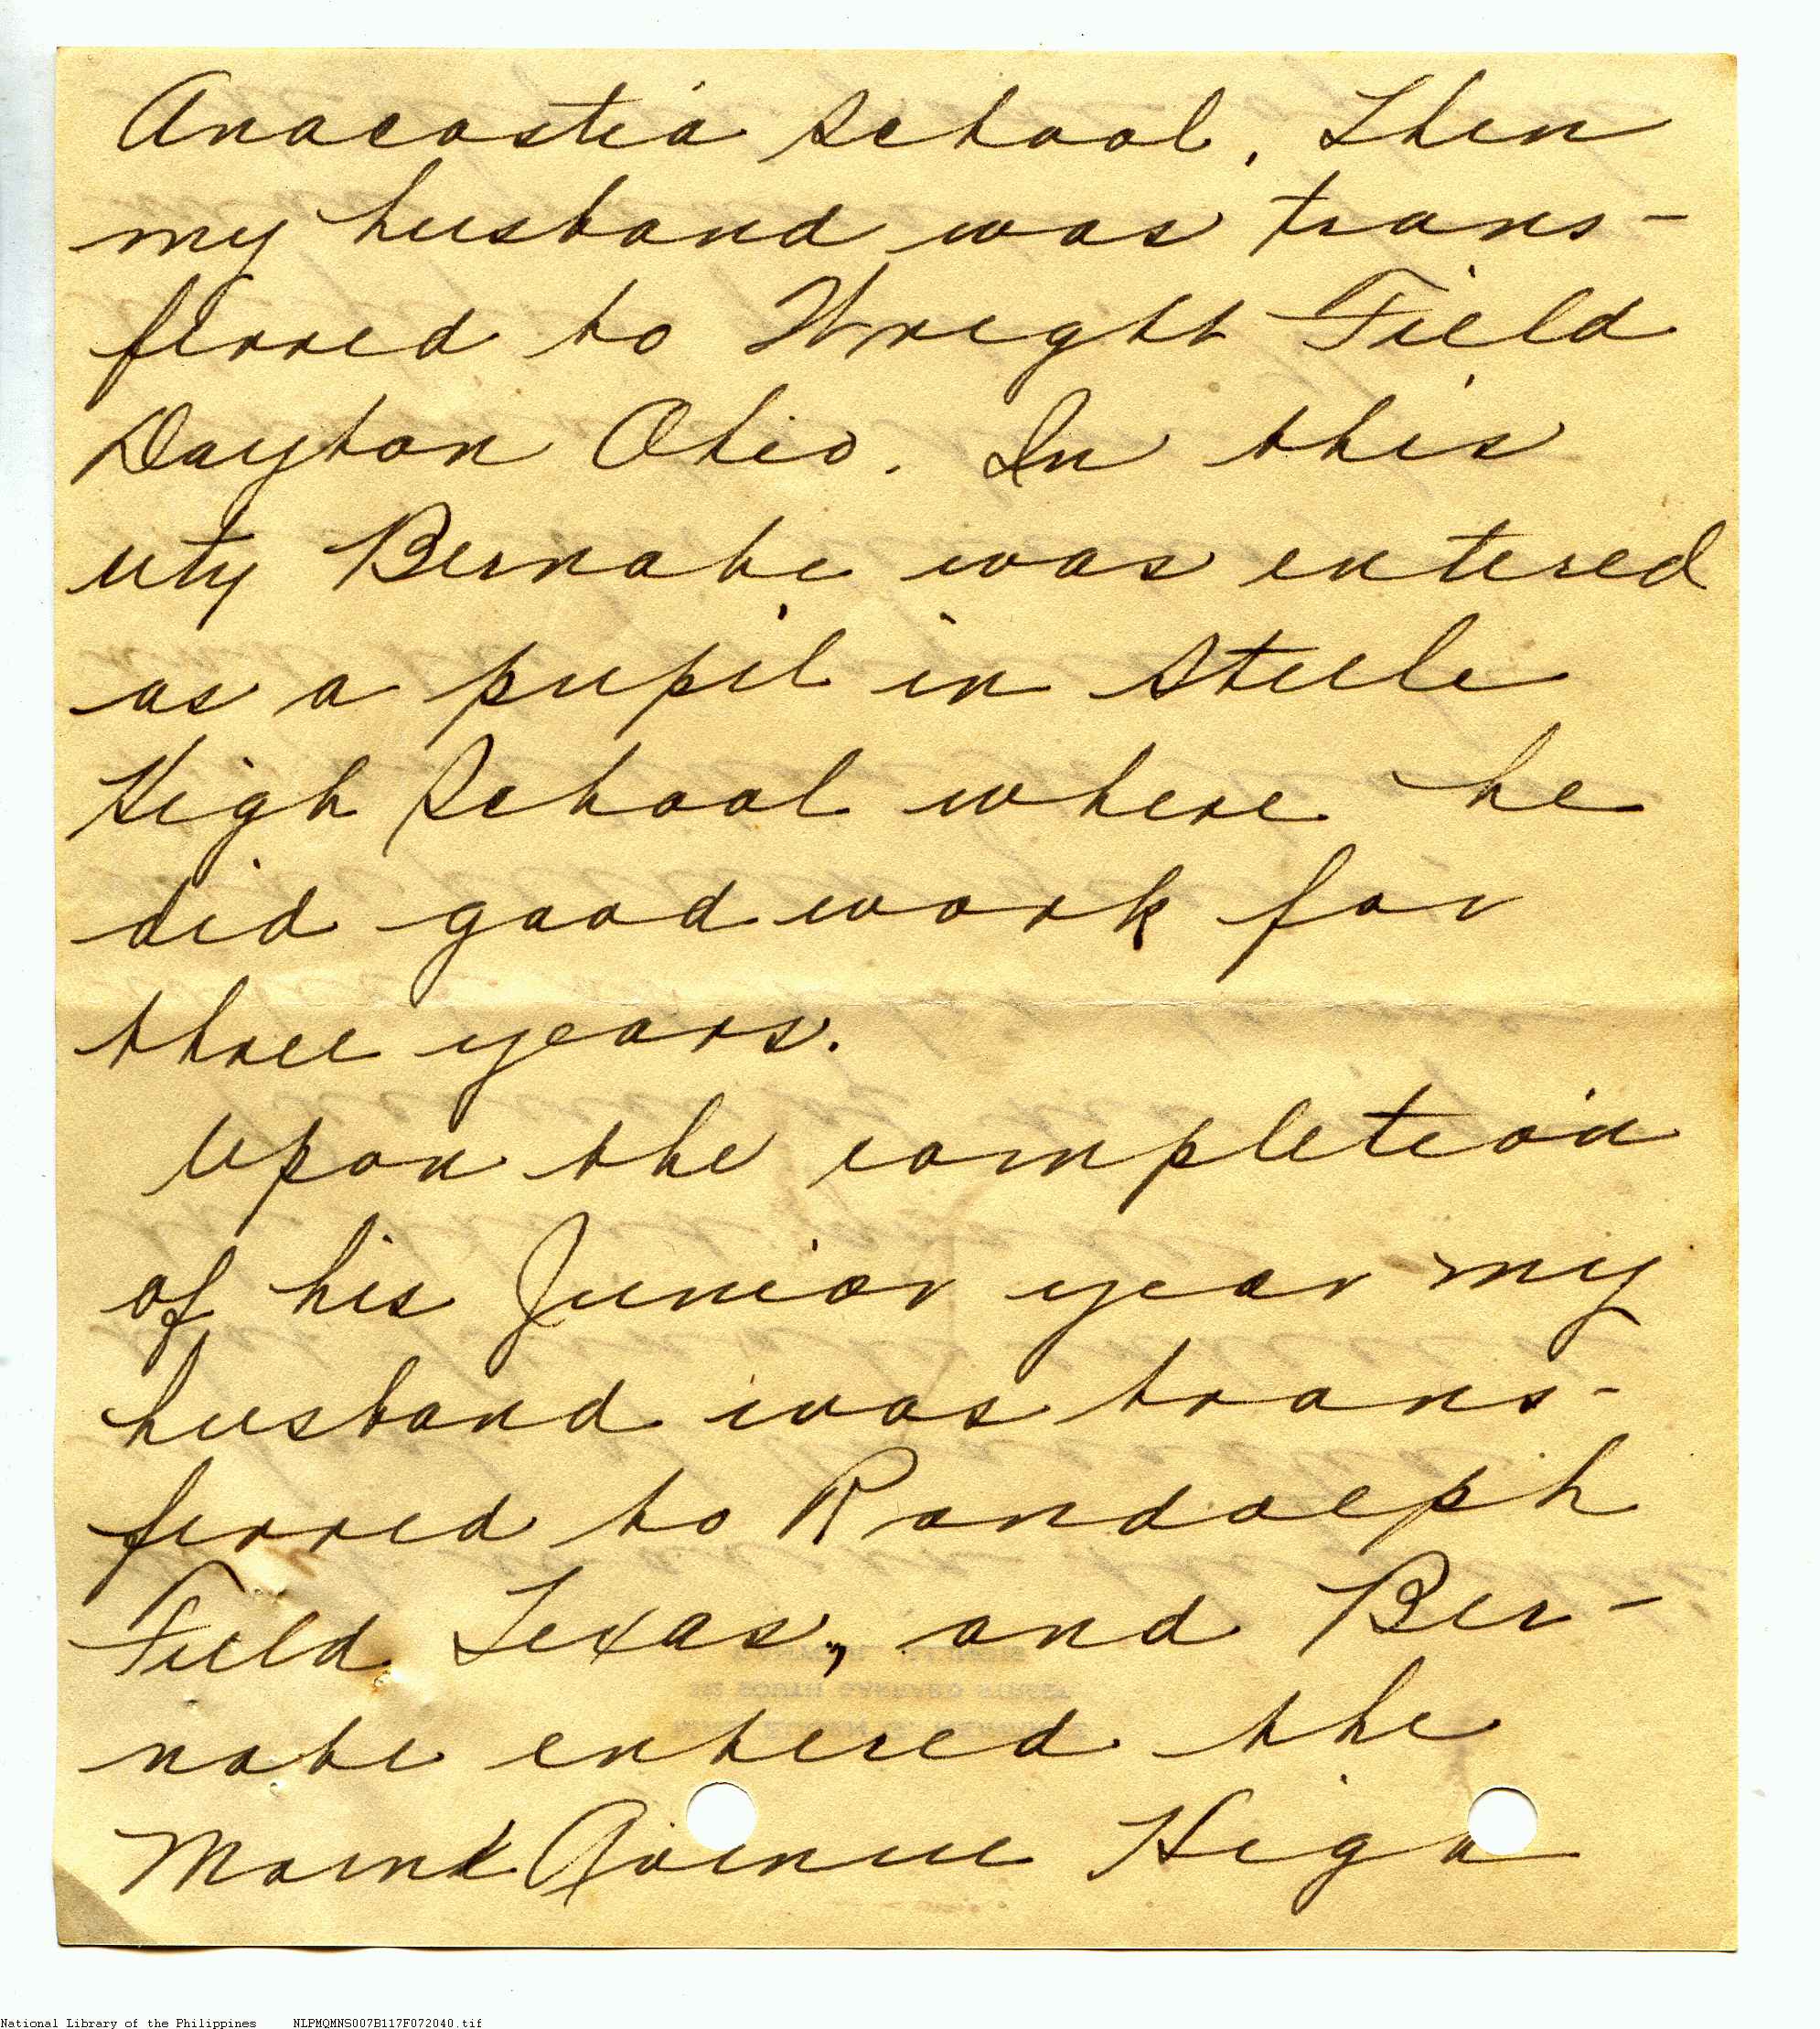 Anacostia School. Then
my husband was trans-
ferred to Wright Field
Dayton Ohio. In this
city Bernabe was entered
as a pupil in Steele
High School where he
did good work for
three years.
Upon the completion
of his Junior year my
husband was trans-
ferred to Randolph
Field Texas, and Ber-
nabe entered the
Avenue High
National Library of the Philippines NLPMQMNS007B117F072040.tif